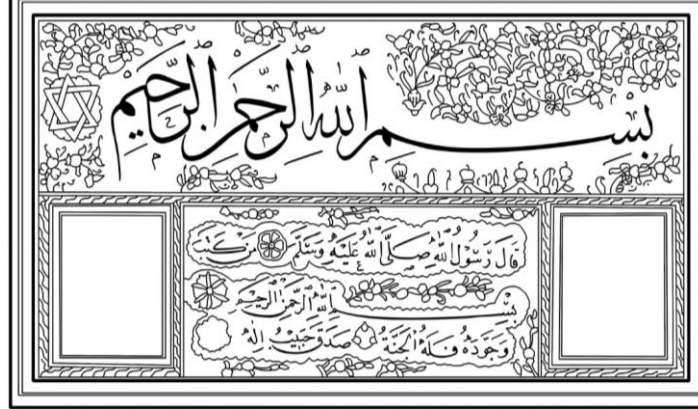 بِسْمِ اللّٰهِ الرَّحْمٰنِ الرَّحِيْمِ
قَالَ رَسُوْلُ اللّٰهِ صَلَّى اللّٰهُ عَلَيْهِ وَسَلَّمَ مَنْ كَتَبَ
بِسْمِ اللّٰهِ الرَّحْمٰنِ الرَّحِيْمِ
وَجَوَّدَهُ فَلَهُ الْجَنَّةُ صَدَقَ حَبِيْبُ اللّٰهِ